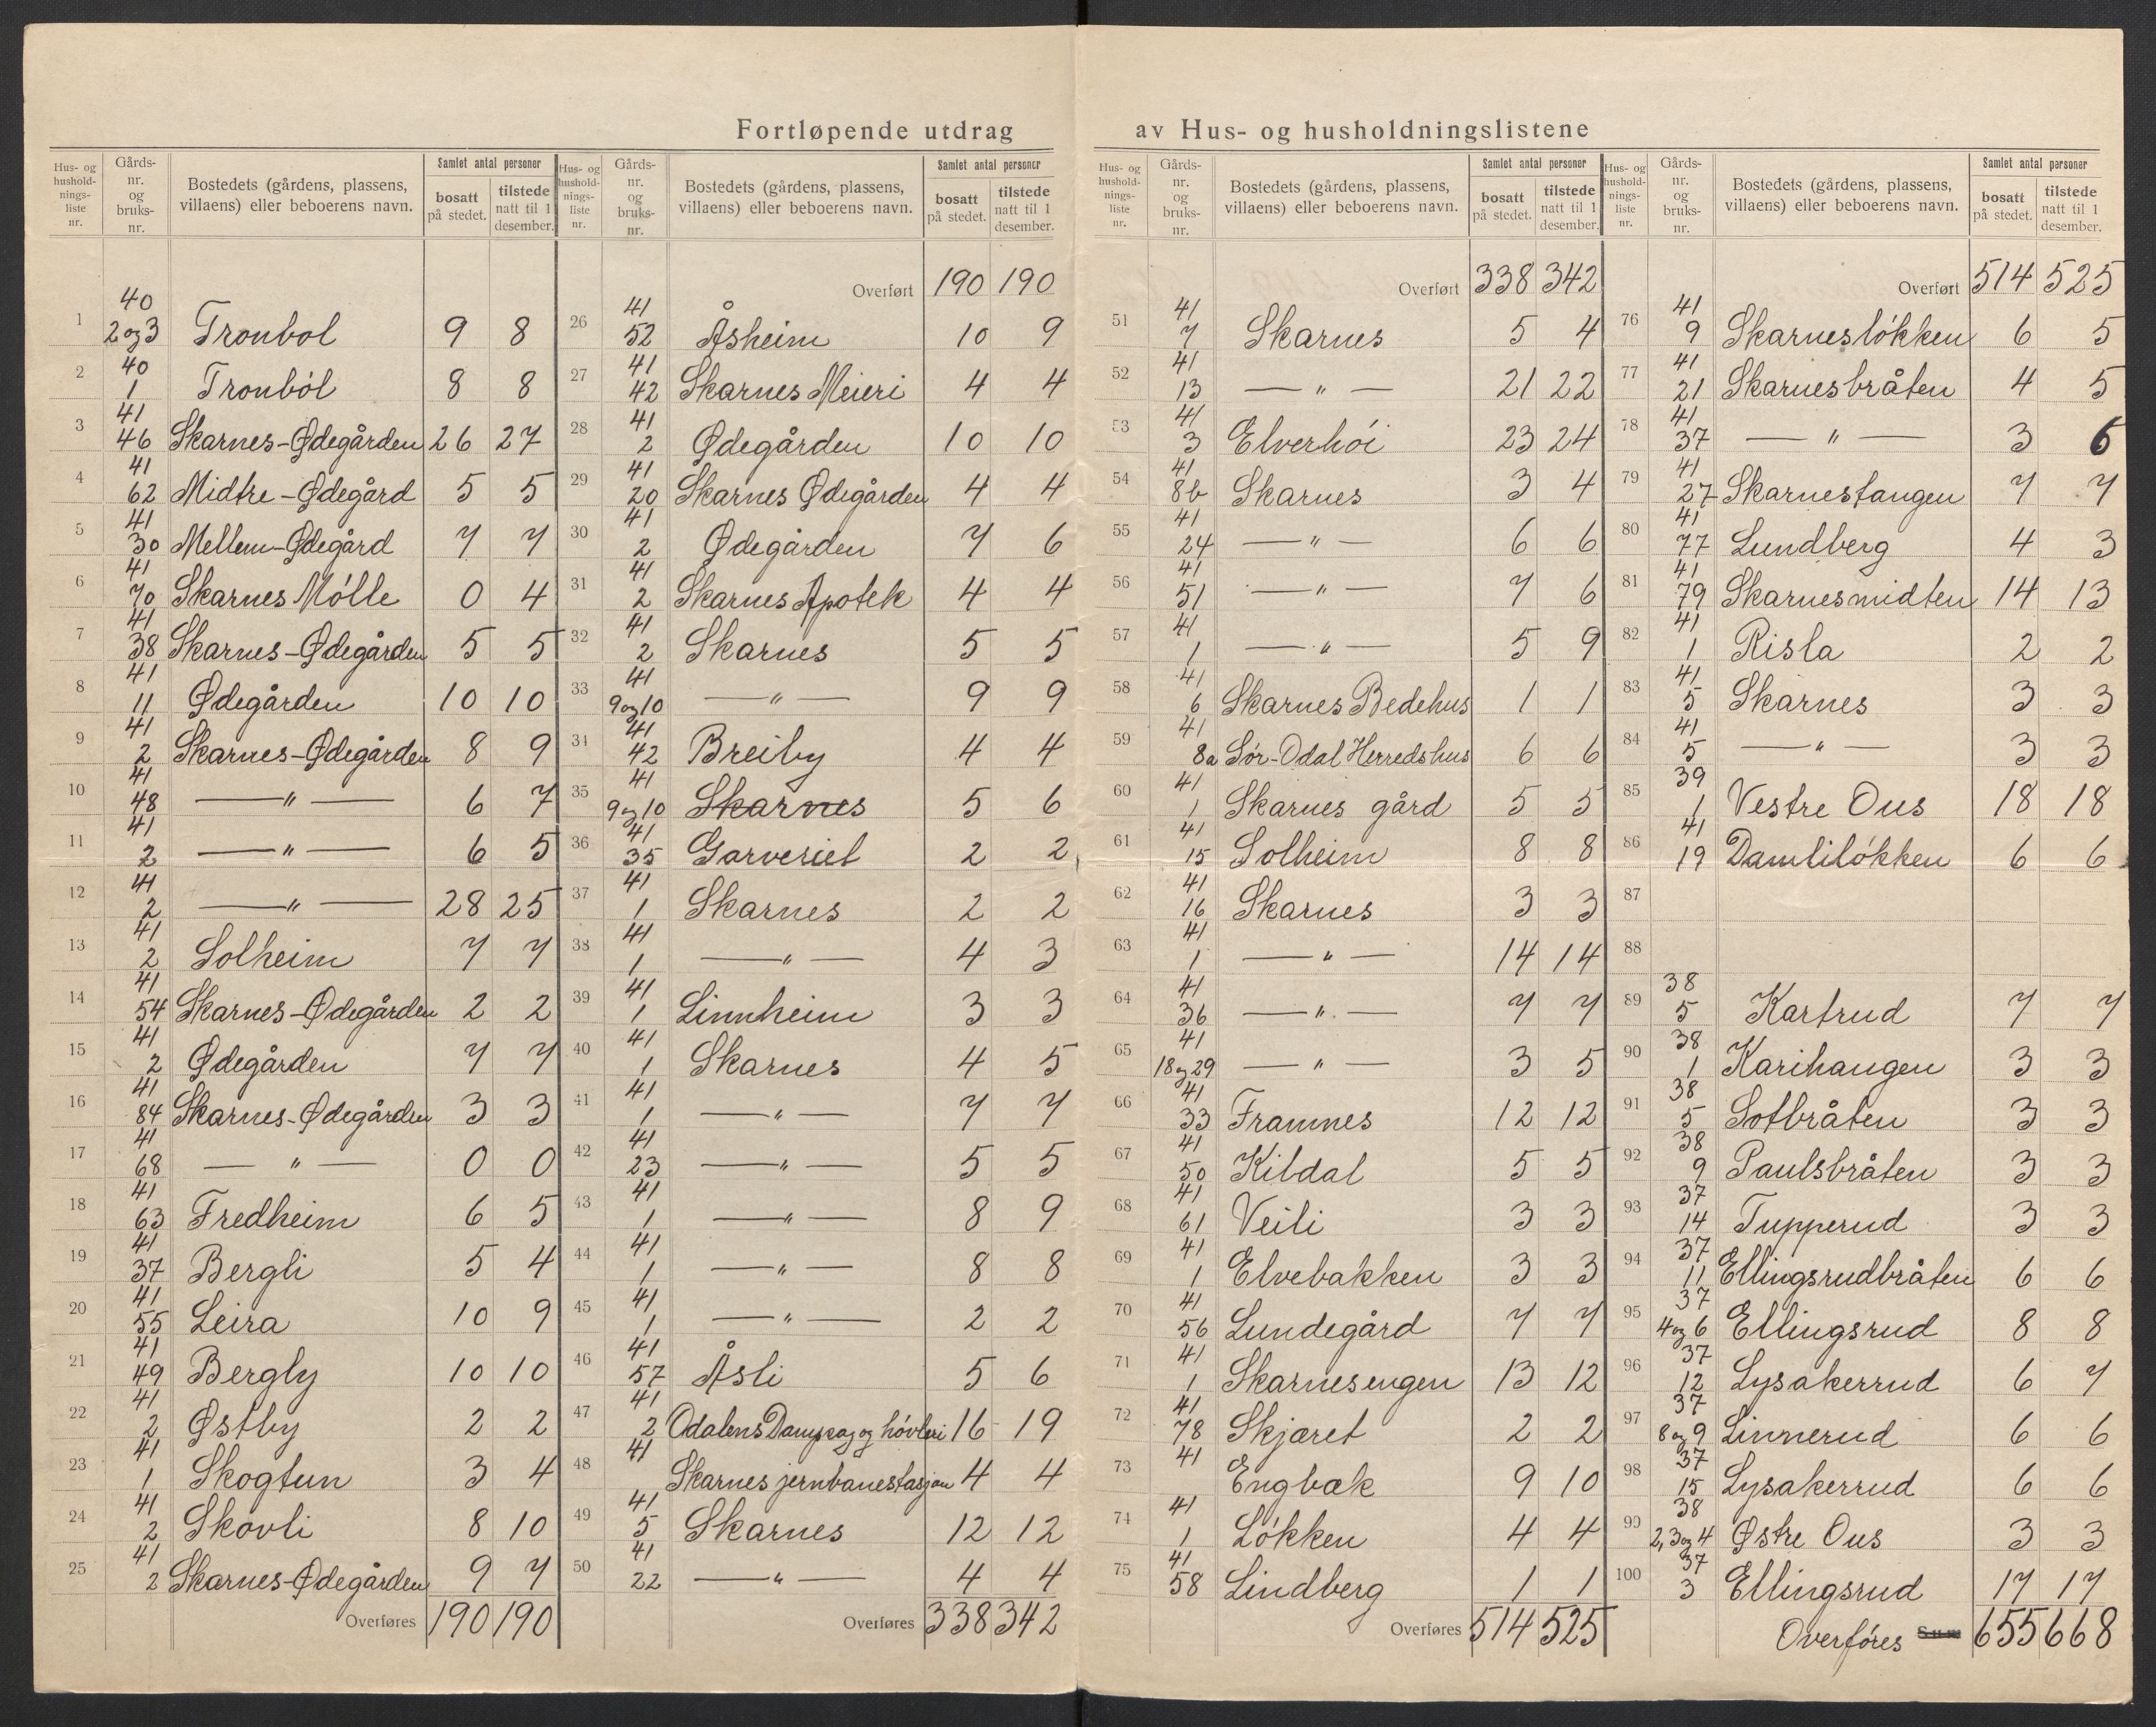 Fortløpende utdrag av Hus- og husholdningslistene
Hus- og husholdnings-liste nr. | Gårds-nr. og bruks-nr. | Bostedets (gårdens, plassens, villaens) eller beboerens navn. | Samlet antal personer | bosatt på stedet. | tilstede natt til 1 desember.
1 | 40 2 og 3 | Tronbol | 9 | 8
2 | 40 1 | Tronból | 8 | 8
3 | 41 46 | Skarnes-Ødegården | 26 | 27
4 | 41 62 | Midtre-Ødegård | 5 | 5
5 | 41 30 | Mellem-Ødegård | 7 | 7
6 | 41 70 | Skarnes Mólle | 0 | 4
7 | 41 38 | Skarnes-Ødegården | 5 | 5
8 | 41 11 | Ødegården | 10 | 10
9 | 41 2 | Skarnes-Ødegården | 8 | 9
10 | 41 48 | — " — | 6 | 7
11 | 41 2 | — " — | 6 | 5
12 | 41 2 | — " — | 28 | 25
13 | 41 2 | Solheim | 7 | 7
14 | 41 54 | Skarnes-Ødegården | 2 | 2
15 | 41 2 | Ødegården | 7 | 7
16 | 41 84 | Skarnes-Ødegården | 3 | 3
17 | 41 68 | — " — | 0 | 0
18 | 41 63 | Fredheim | 6 | 5
19 | 41 37 | Bergli | 5 | 4
20 | 41 55 | Leira | 10 | 9
21 | 41 49 | Bergly | 10 | 10
22 | 41 2 | Østby | 2 | 2
23 | 41 1 | Skogtun | 3 | 4
24 | 41 2 | Skovli | 8 | 10
25 | 41 2 | Skarnes-Ødegården | 9 | 7
Overføres | 190 | 190
Hus- og husholdnings-liste nr. | Gårds-nr. og bruks-nr. | Bostedets (gårdens, plassens, villaens) eller beboerens navn. | Samlet antal personer | bosatt på stedet. | tilstede natt til 1 desember.
Overført | 190 | 190
26 | 41 52 | Åsheim | 10 | 9
27 | 41 42 | Skarnes Meieri | 4 | 4
28 | 41 2 | Ødegården | 10 | 10
29 | 41 20 | Skarnes Ødegården | 4 | 4
30 | 41 2 | Ødegården | 7 | 6
31 | 41 2 | Skarnes Apotek | 4 | 4
32 | 41 2 | Skarnes | 5 | 5
33 | 41 9 og 10 | — " — | 9 | 9
34 | 41 42 | Breiby | 4 | 4
35 | 41 9 og 10 | Skarnes | 5 | 6
36 | 41 35 | Garveriet | 2 | 2
37 | 41 1 | Skarnes | 2 | 2
38 | 41 1 | — " — | 4 | 3
39 | 41 1 | Linnheim | 3 | 3
40 | 41 1 | Skarnes | 4 | 5
41 | 41 1 | — " — | 7 | 7
42 | 41 23 | — " — | 5 | 5
43 | 41 1 | — " — | 8 | 9
44 | 41 1 | — " — | 8 | 8
45 | 41 1 | — " — | 2 | 2
46 | 41 57 | Åsli | 5 | 6
47 | 41 2 | Odalens Dampsag og hóvleri | 16 | 19
48 | 41 | Skarnes jernbanestasjon | 4 | 4
49 | 41 5 | Skarnes | 12 | 12
50 | 41 22 | — " — | 4 | 4
Overføres | 338 | 342
Hus- og husholdnings-liste nr. | Gårds-nr. og bruks-nr. | Bostedets (gårdens, plassens, villaens) eller beboerens navn. | Samlet antal personer | bosatt på stedet. | tilstede natt til 1 desember.
Overført | 338 | 342
51 | 41 7 | Skarnes | 5 | 4
52 | 41 13 | — " — | 21 | 22
53 | 41 3 | Elverhói | 23 | 24
54 | 41 8b | Skarnes | 3 | 4
55 | 41 24 | — " — | 6 | 6
56 | 41 51 | — " — | 7 | 6
57 | 41 1 | — " — | 5 | 9
58 | 41 6 | Skarnes Bedehus | 1 | 1
59 | 41 8a | Sór-Odal Herredshus | 6 | 6
60 | 41 1 | Skarnes gård | 5 | 5
61 | 41 15 | Solheim | 8 | 8
62 | 41 16 | Skarnes | 3 | 3
63 | 41 1 | — " — | 14 | 14
64 | 41 36 | — " — | 7 | 7
65 | 41 18 og 29 | — " — | 3 | 5
66 | 41 33 | Framnes | 12 | 12
67 | 41 50 | Kildal | 5 | 5
68 | 41 61 | Veili | 3 | 3
69 | 41 1 | Elvebakken | 3 | 3
70 | 41 56 | Lundegård | 7 | 7
71 | 41 1 | Skarnesengen | 13 | 12
72 | 41 78 | Skjæret | 2 | 2
73 | 41 | Engbæk | 9 | 10
74 | 41 1 | Lókken | 4 | 4
75 | 41 58 | Lindberg | 1 | 1
Overføres | 514 | 525
Hus- og husholdnings-liste nr. | Gårds-nr. og bruks-nr. | Bostedets (gårdens, plassens, villaens) eller beboerens navn. | Samlet antal personer | bosatt på stedet. | tilstede natt til 1 desember.
Overført | 514 | 525
76 | 41 9 | Skarneslókken | 6 | 5
77 | 41 21 | Skarnesbråten | 4 | 5
78 | 41 37 | — " — | 3 | 6
79 | 41 27 | Skarnestangen | 7 | 7
80 | 41 77 | Lundberg | 4 | 3
81 | 41 79 | Skarnesmidten | 14 | 13
82 | 41 1 | Risla | 2 | 2
83 | 41 5 | Skarnes | 3 | 3
84 | 41 5 | — " — | 3 | 3
85 | 39 1 | Vestre Ous | 18 | 18
86 | 41 19 | Damlilókken | 6 | 6
87
88
89 | 38 5 | Kartrud | 7 | 7
90 | 38 1 | Karihaugen | 3 | 3
91 | 38 5 | Sotbråten | 3 | 3
92 | 38 9 | Paulsbråten | 3 | 3
93 | 37 14 | Tupperud | 3 | 3
94 | 37 11 | Ellingsrudbråten | 6 | 6
95 | 37 4 og 6 | Ellingsrud | 8 | 8
96 | 37 12 | Lysakerrud | 6 | 7
97 | 37 8 og 9 | Linnerud | 6 | 6
98 | 37 15 | Lysakerrud | 6 | 6
99 | 38 2, 3 og 4 | Østre Ous | 3 | 3
100 | 37 3 | Ellingsrud | 17 | 17
Overfóres Sum | 655 | 668